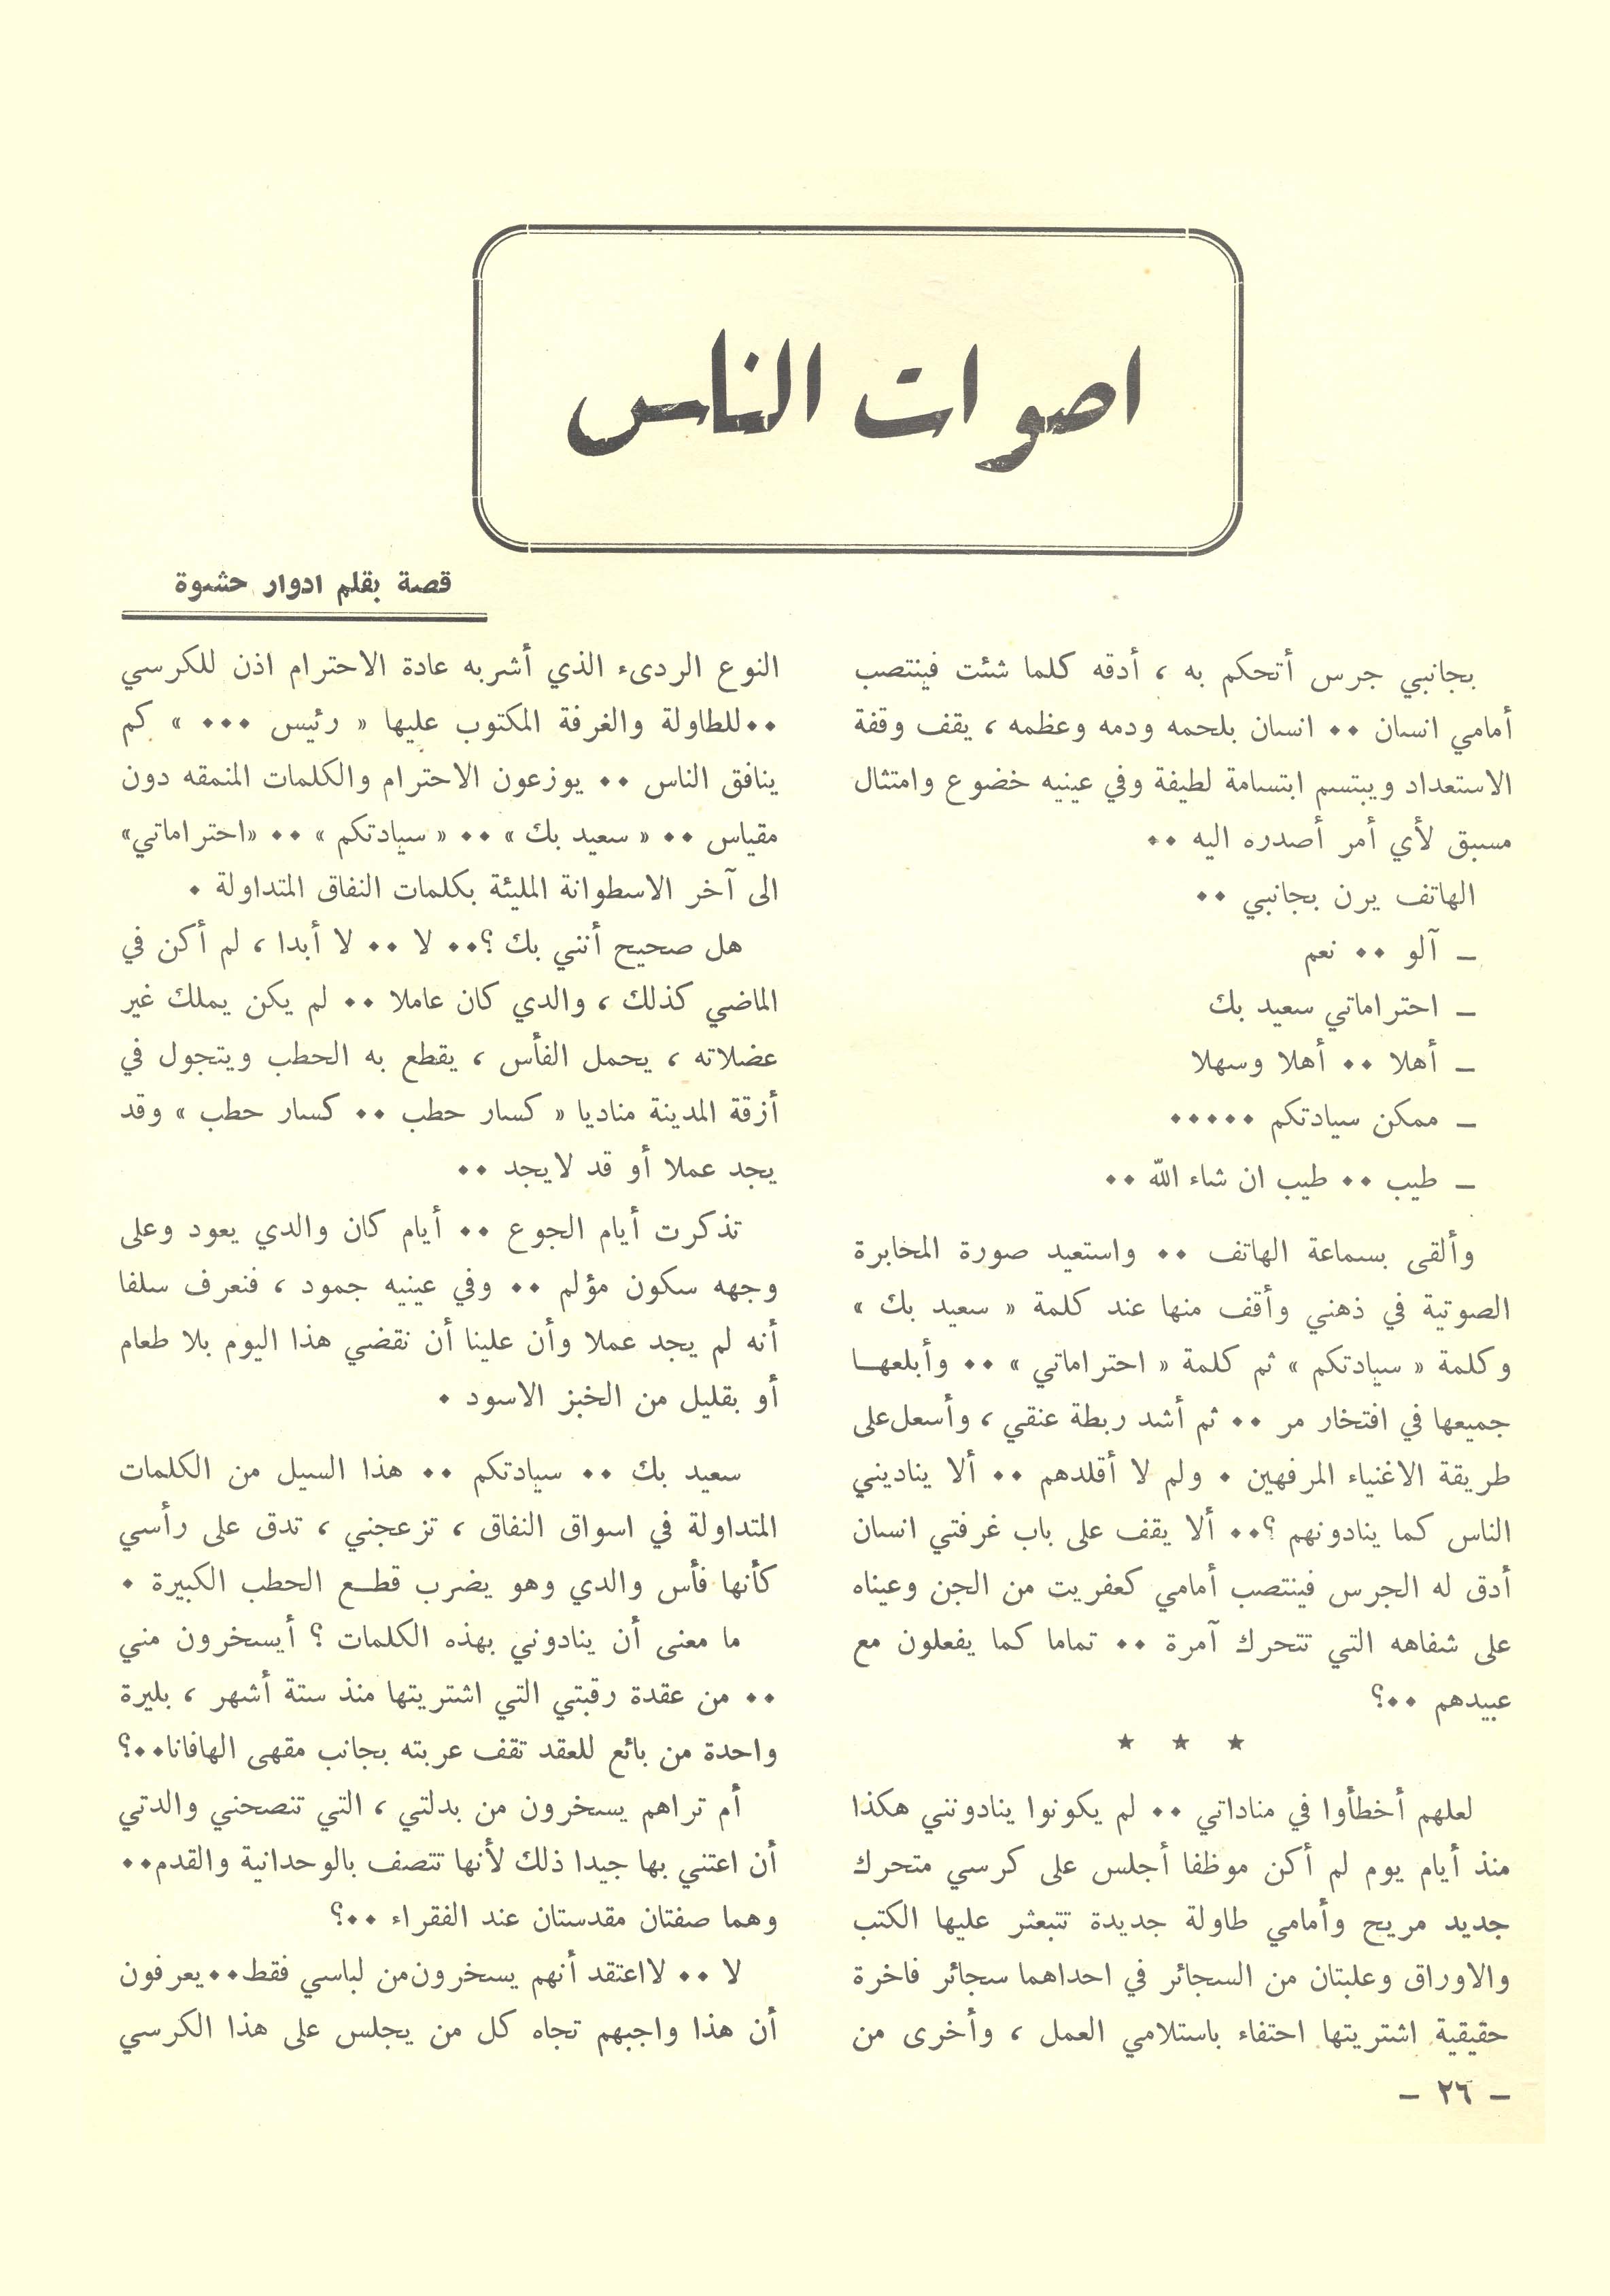 اصوات الناس
قصة بقلم ادوار حشوة
بجانبي جرس أتحكم به ، أدقه كلما شئت فينتصب
أمامي انسان ٠٠ انسان بلحمه ودمه وعظمه ، يقف وقفة
الاستعداد ويبتسم ابتسامة لطيفة وفي عينيه خضوع وامتثال
مسبق لأي أمر أصدره اليه ٠٠
الهاتف يرن بجانبي ٠٠
ـ آلو ٠٠ نعم
ـ احتراماتي سعيد بك
ـ أهلا ٠٠ أهلا وسهلا
ـ ممكن سيادتكم ٠٠٠٠٠
ـ طيب ٠٠ طيب ان شاء الله ٠٠
وألقى بسماعة الهاتف ٠٠ واستعيد صورة المخابرة
الصوتية في ذهني وأقف منها عند كلمة « سعيد بك »
وكلمة « سيادتكم » ثم كلمة « احتراماتي » ٠٠ وأبلعهـا
جميعها في افتخار مر ٠٠ ثم أشد ربطة عنقي ، وأسعل على
طريقة الاغنياء المرفهين ٠ ولم لا أقلدهم ٠٠ ألا يناديني
الناس كما ينادونهم ؟٠٠ ألا يقف على باب غرفتي انسان
أدق له الجرس فينتصب أمامي كعفريت من الجن وعيناه
على شفاهه التي تتحرك آمرة ٠٠ تماما كما يفعلون مع
عبيدهم ٠٠؟
★ ★ ★
لعلهم أخطأوا في مناداتي ٠٠ لم يكونوا ينادونني هكذا
منذ أيام يوم لم أكن موظفا أجلس على كرسي متحرك
جديد مريح وأمامي طاولة جديدة تتبعثر عليها الكتب
والاوراق وعلبتان من السجائر في احداهما سجائر فاخرة
حقيقية اشتريتها احتفاء باستلامي العمل ، وأخرى من
النوع الردىء الذي أشربه عادة الاحترام اذن للكرسي
٠٠للطاولة والغرفة المكتوب عليها « رئيس ٠٠٠ » كم
ينافق الناس ٠٠ يوزعون الاحترام والكلمات المنمقه دون
مقياس ٠٠ « سعيد بك » ٠٠ « سيادتكم » ٠٠ «احتراماتي»
الى آخر الاسطوانة المليئة بكلمات النفاق المتداولة ٠
هل صحيح أنني بك ؟٠٠ لا ٠٠ لا أبدا ، لم أكن في
الماضي كذلك ، والدي كان عاملا ٠٠ لم يكن يملك غير
عضلاته ، يحمل الفأس ، يقطع به الحطب ويتجول في
أزقة المدينة مناديا « كسار حطب ٠٠ كسار حطب » وقد
يجد عملا أو قد لايجد ٠٠
تذكرت أيام الجوع ٠٠ أيام كان والدي يعود وعلى
وجهه سكون مؤلم ٠٠ وفي عينيه جمود ، فنعرف سلفا
أنه لم يجد عملا وأن علينا أن نقضي هذا اليوم بلا طعام
أو بقليل من الخبز الاسود ٠
سعيد بك ٠٠ سيادتكم ٠٠ هذا السيل من الكلمات
المتداولة في اسواق النفاق ، تزعجني ، تدق على رأسي
كأنها فأس والدي وهو يضرب قطـع الحطب الكبيرة ٠
ما معنى أن ينادوني بهذه الكلمات ؟ أيسخرون مني
٠٠ من عقدة رقبتي التي اشتريتها منذ ستة أشهر ، بليرة
واحدة من بائع للعقد تقف عربته بجانب مقهى الهافانا٠٠؟
أم تراهم يسخرون من بدلتي ، التي تنصحني والدتي
أن اعتني بها جيدا ذلك لأنها تتصف بالوحدانية والقدم٠٠
وهما صفتان مقدستان عند الفقراء ٠٠؟
لا ٠٠ لااعتقد أنهم يسخرون من لباسي فقط٠٠يعرفون
أن هذا واجبهم تجاه كل من يجلس على هذا الكرسي
ـ ٢٦ ـ